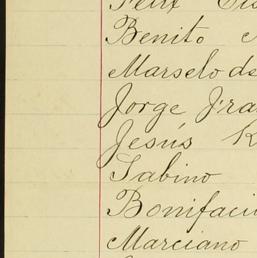 Felix
Benito
Marselo de
Jorge Fra
Jesús R
Sabino
Bonifaci
Marciano